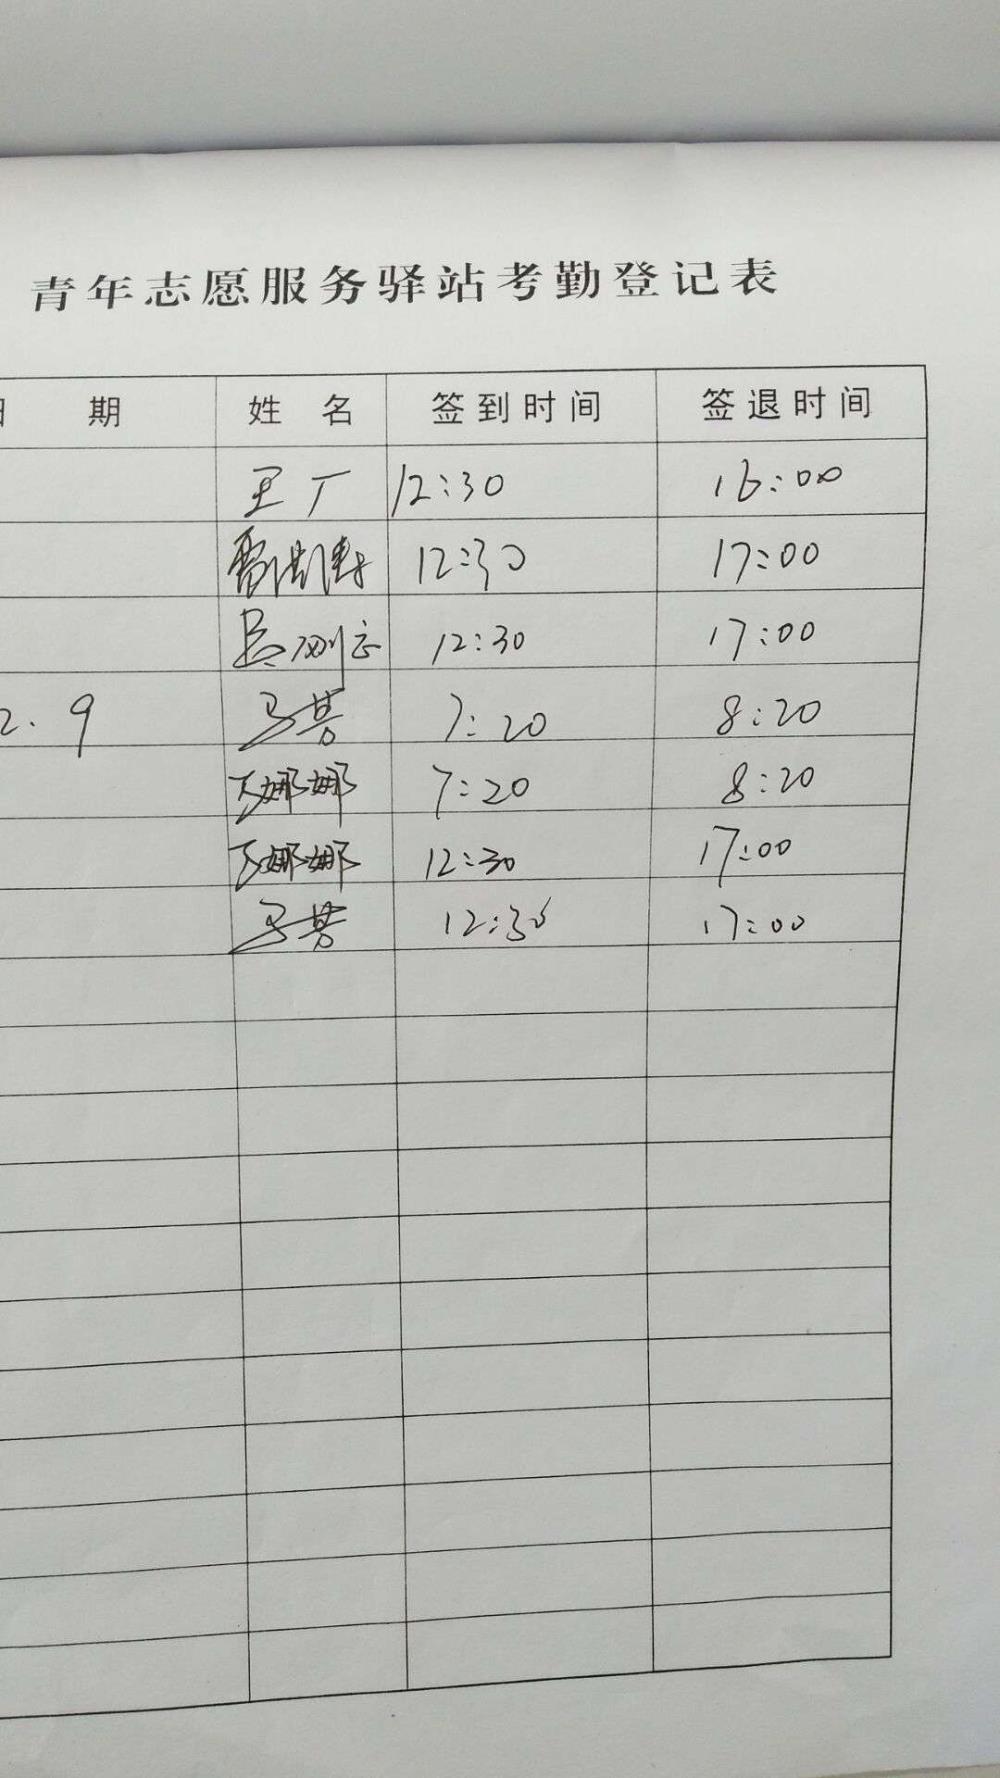 青年志愿服务驿站考勤登记表
期 姓 名 签到时间 签退时间
王厂 12:30 16:00
12:30 17:00
12:30 17:00
2.9 7:20 8:20
娜娜 7:20 8:20
娜娜 12:30 17:00
12:30 17:00